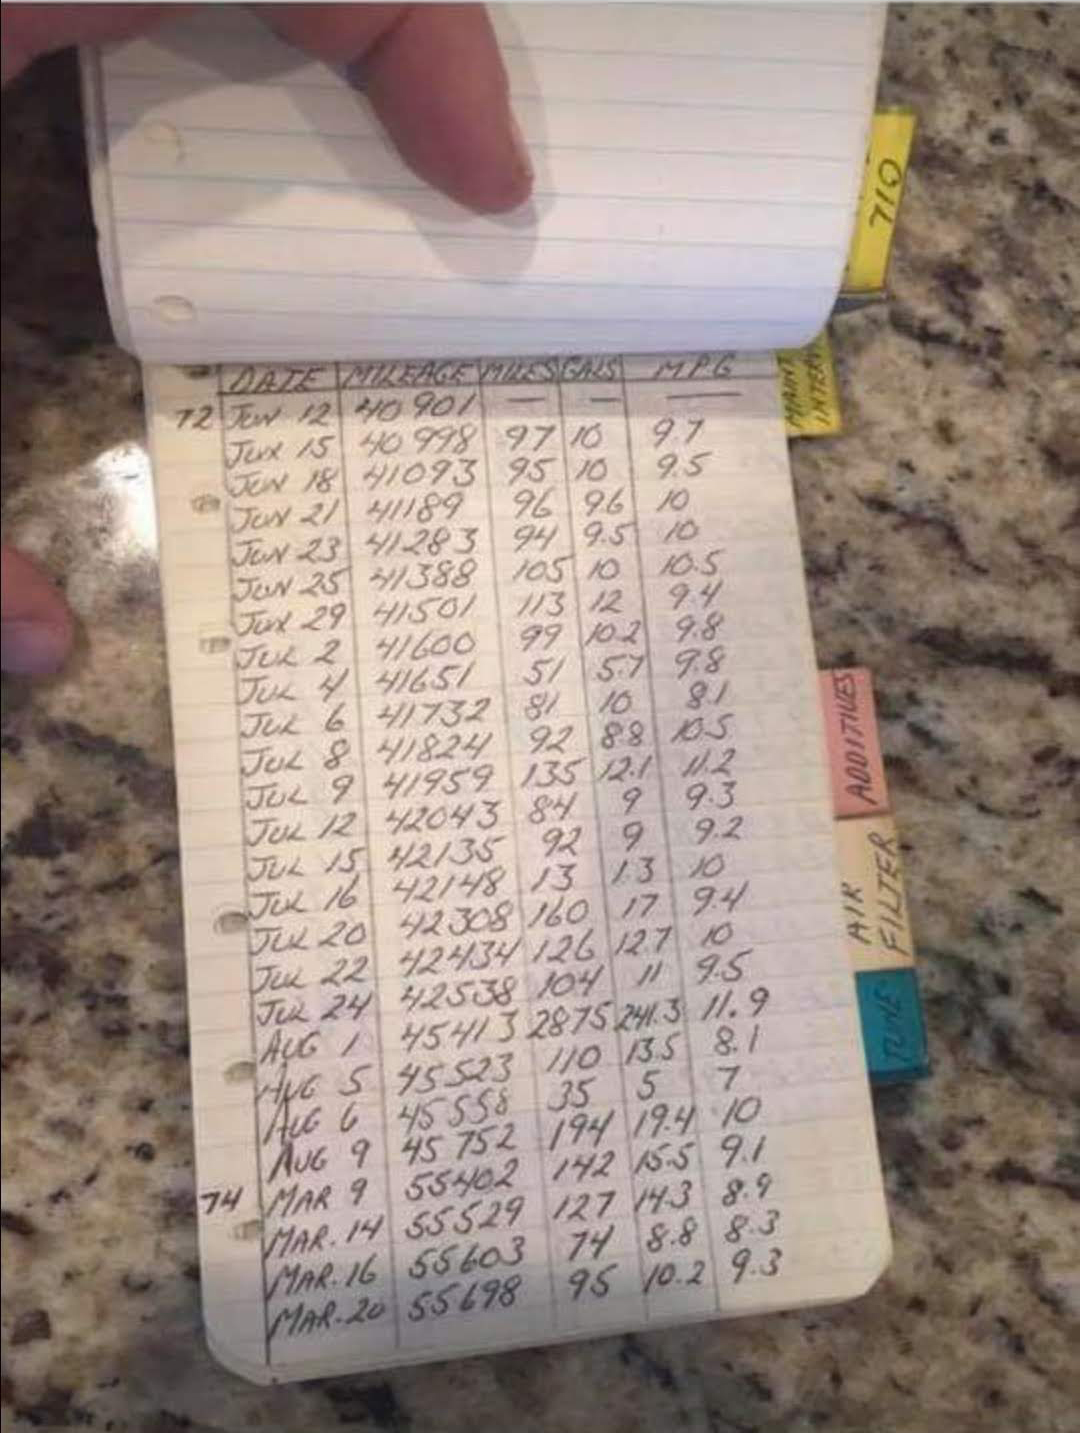 OIL
MAIN
INTERV
DATE MILEAGE MILES GALS MPG
72 JUN 12 40901 — — —
JUN 15 40998 97 10 9.7
JUN 18 41093 95 10 9.5
JUN 21 41189 96 9.6 10
JUN 23 41283 94 9.5 10
JUN 25 41388 105 10 10.5
JUN 29 41501 113 12 9.4
JUL 2 41600 99 10.2 9.8
JUL 4 41651 51 5.7 9.8
JUL 6 41732 81 10 8.1
JUL 8 41824 92 8.8 10.5
JUL 9 41959 135 12.1 11.2
JUL 12 42043 84 9 9.3
JUL 15 42135 92 9 9.2
JUL 16 42148 13 1.3 10
JUL 20 42308 160 17 9.4
JUL 22 42434 126 12.7 10
JUL 24 42538 104 11 9.5
AUG 1 45413 2875 241.3 11.9
AUG 5 45523 110 13.5 8.1
AUG 6 45558 35 5 7
AUG 9 45752 194 19.4 10
74 MAR 9 55402 142 15.5 9.1
MAR. 14 55529 127 14.3 8.9
MAR. 16 55603 74 8.8 8.3
MAR. 20 55698 95 10.2 9.3
ADDITIVES
AIR
FILTER
TUNE